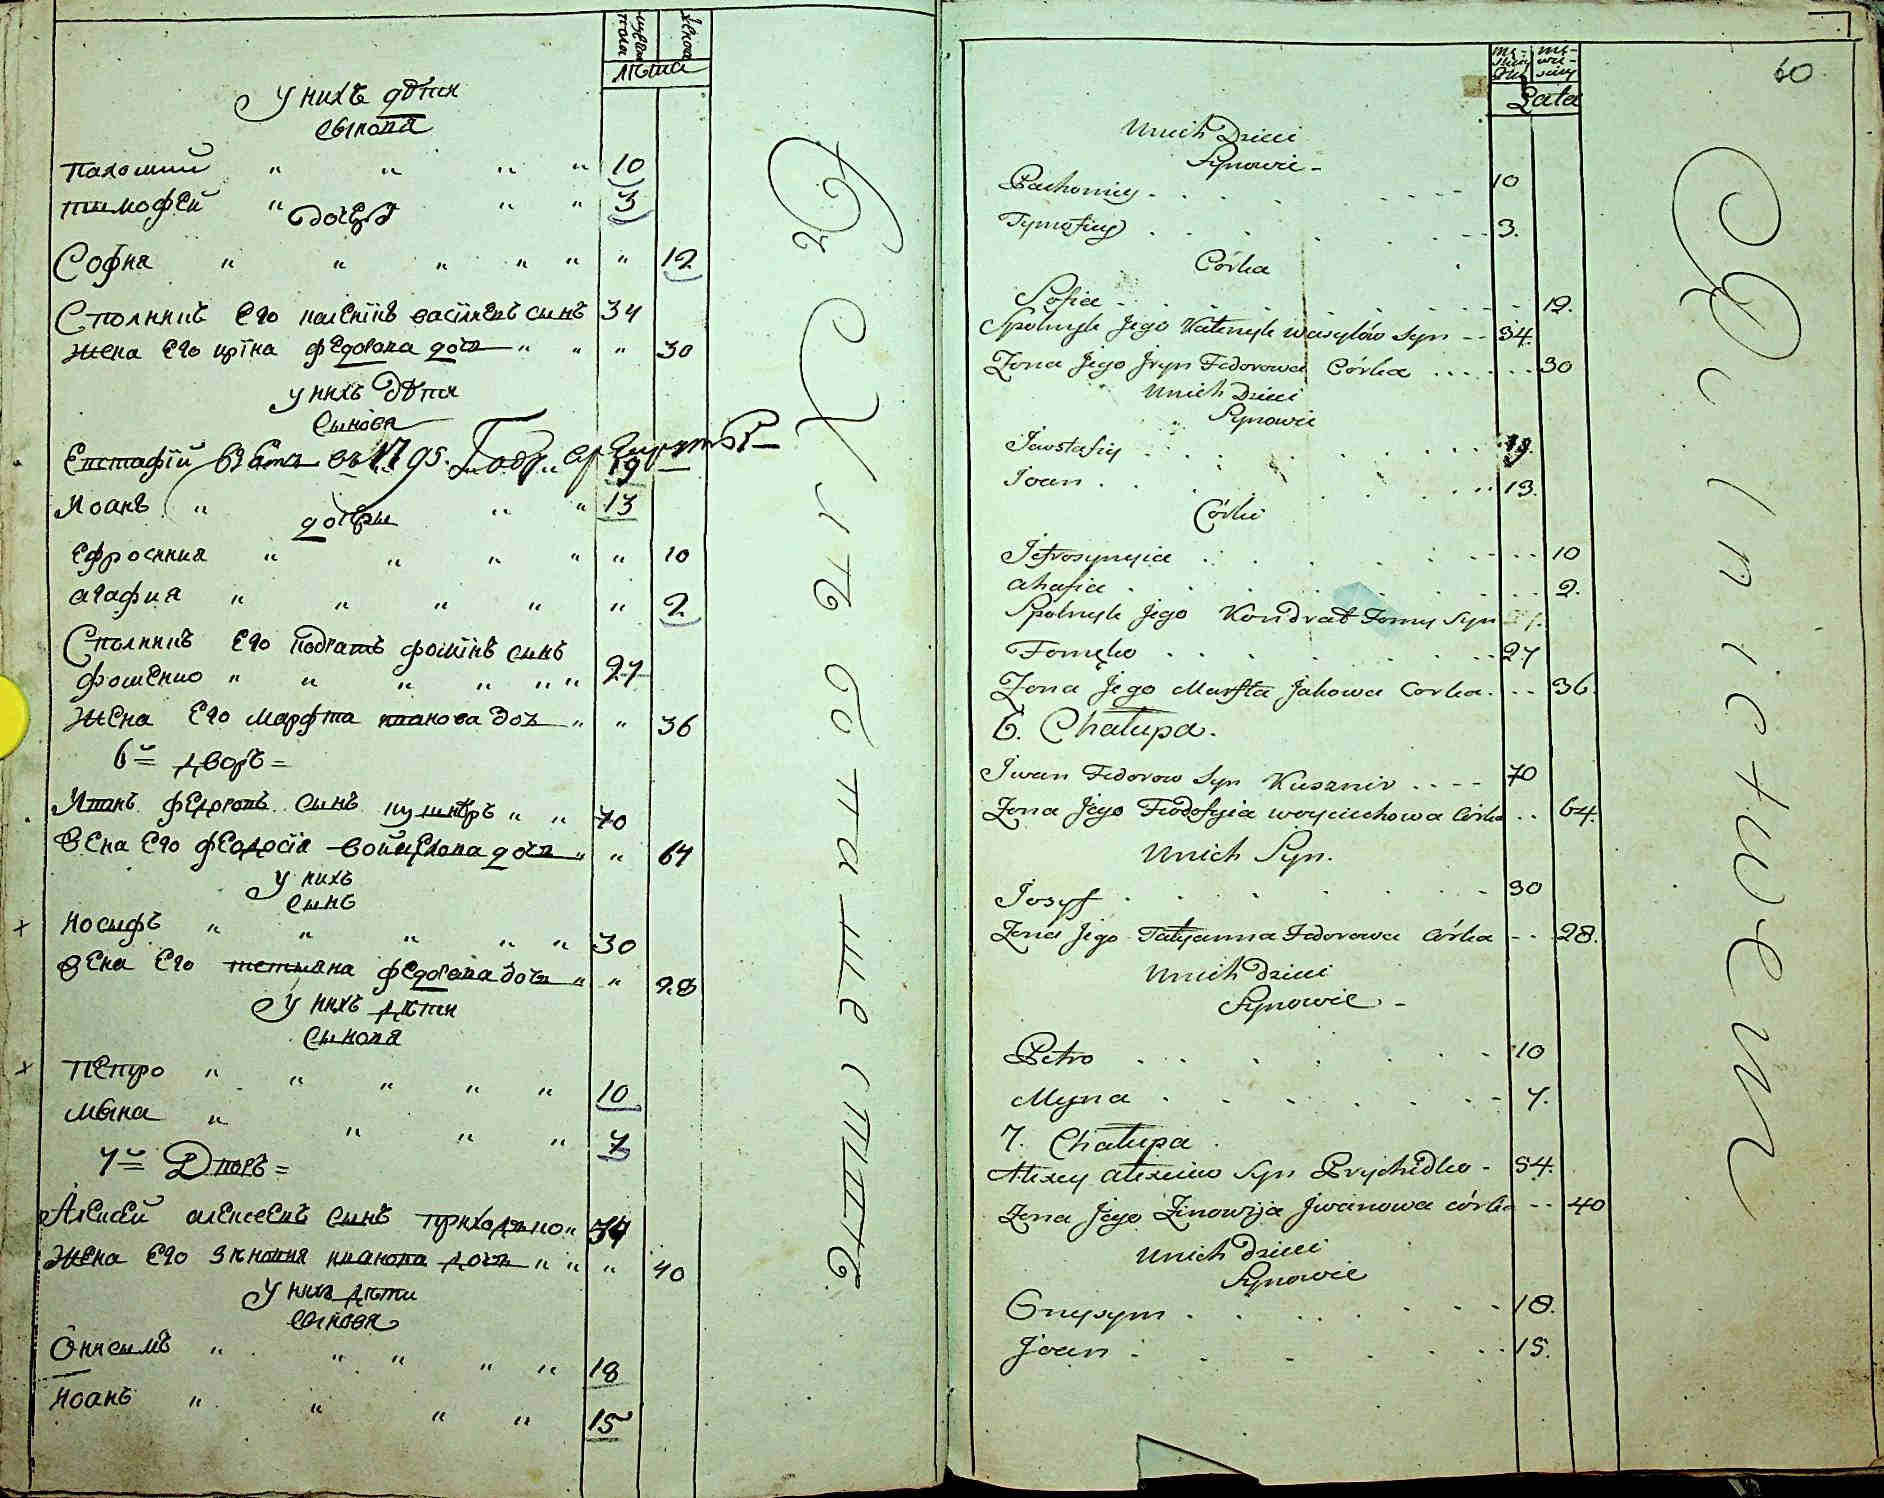 мужеска пола
женска
лѣта
У нихъ дѣти
Сынова
Пахомий " " " " 10
Тимофей " " " 3
дочерѣ
София " " " " " " 12
Сполникъ его Каленикъ Василиевъ синъ 34
Жена его Ирина Федорова дочь " " " 30
У нихъ дѣти
Синова
Евстафій въ 1795 19
Иоанъ " " " 13
дочери
Ефросиния " " " " " 10
Агафия " " " " " 2
Сполникъ его Кодратъ Фоминъ синъ
Фоменко " " " " " " 27
Жена его Марфта Иванова дочь " " 36
6й = дворъ =
Иванъ Федоровъ синъ Кушнѣръ " " 70
Жена его Феодосія Войцехова дочь " " 64
У нихъ
Синъ
Иосифъ " " " " " 30
Жена его Тетияна Федорова дочь " " 28
У нихъ дѣти
Синова
Петро " " " " " 10
Мына " " " " 7
7й = Дворъ =
Алексей Алексеевъ синъ Приходько " 54
Жена его Зѣновия Иванова дочь " " " 40
У нихъ дѣти
Синова
Онисимъ " " " " " 18
Иоанъ " " " " 15
60
Lata
Unich Dzieci
Synowie -
Pachomiy - . . . . 10
Tymofiey . . . . 3.
Córka
Sofia - . . . . 12.
Spolnyk Jego Kalenyk Wasylów Syn -- 34.
Zona Jego Jryn Fedorowa Córka ...... 30
Unich Dzieci
Synowie
Jewstafiy . . . . 19.
Joan . . . . 13.
Córki
Jefrosynyia . . . . 10
Ahafia . . . . 2.
Spolnyk Jego Kondrat Fomy Syn
Fomęko . . . . 27
Zona Jego Marfta Jakowa Corka. -- 36.
6. Chałupa.
Jwan Fedorow Syn Kusznir .... 70
Zona Jego Fiodosyia Woyciechowa Córka .. 64.
Unich Syn.
Josyf . . . . 30
Zona Jego Tatyanna Fedorowa Córka -- 28.
Unich dzieci
Synowie -
Petro . . . . 10
Myna . . . . 7.
7. Chałupa.
Alexey Alexeiew Syn Prychidko - 54.
Zona Jego Zinowija Jwanowa córka -- 40
Unich dzieci
Synowie
Onysym . . . . 18.
Joan . . . . 15.